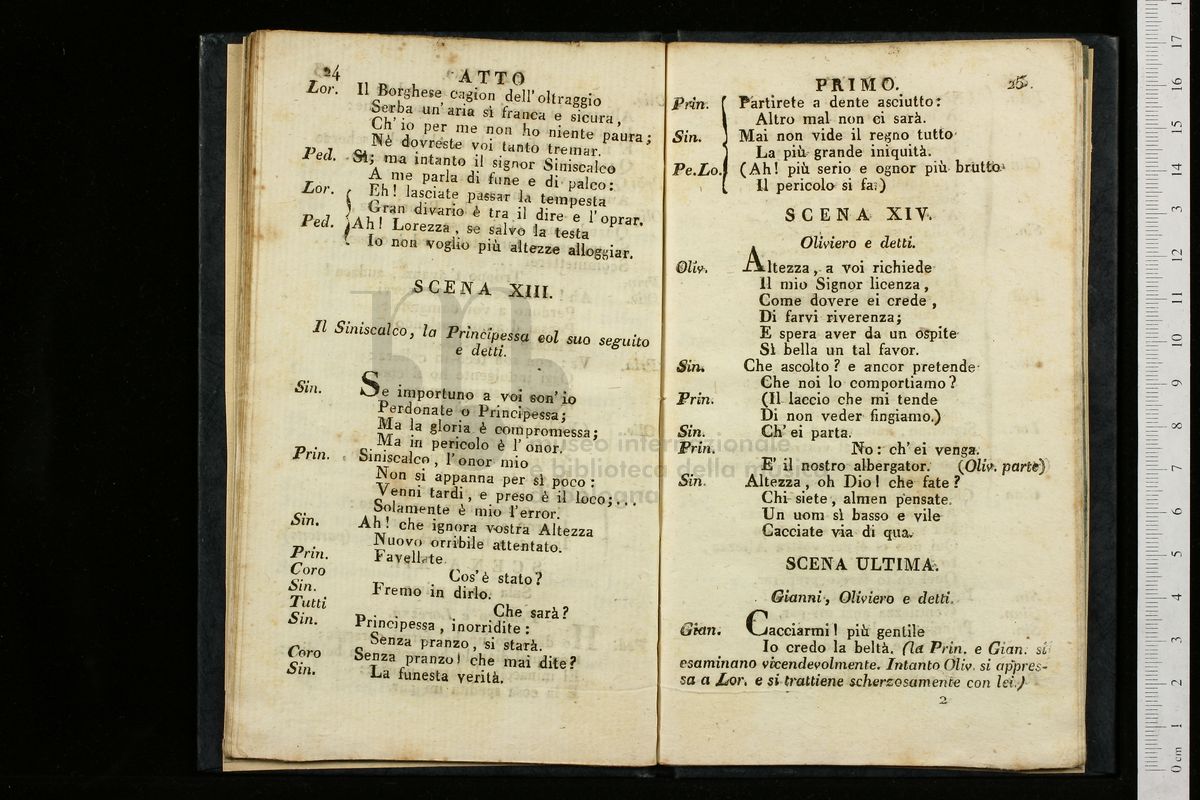 24 ATTO
Lor. Il Borghese cagion dell'oltraggio
Serba un'aria sì franca e sicura,
Ch'io per me non ho niente paura;
Nè dovreste voi tanto tremar.
Ped. Sì; ma intanto il signor Siniscalco
A me parla di fune e di palco:
Lor. Eh! lasciate passar la tempesta
Gran divario è tra il dire e l'oprar.
Ped. Ah! Lorezza, se salvo la testa
Io non voglio più altezze alloggiar.
SCENA XIII.
Il Siniscalco, la Principessa col suo seguito
e detti.
Sin. Se importuno a voi son'io
Perdonate o Principessa;
Ma la gloria è compromessa;
Ma in pericolo è l'onor.
Prin. Siniscalco, l'onor mio
Non si appanna per sì poco:
Venni tardi, e preso è il loco;...
Solamente è mio l'error.
Sin. Ah! che ignora vostra Altezza
Nuovo orribile attentato.
Prin. Favellate
Coro Cos'è stato?
Sin. Fremo in dirlo.
Tutti Che sarà?
Sin. Principessa, inorridite:
Senza pranzo, si starà.
Coro Senza pranzo! che mai dite?
Sin. La funesta verità.
PRIMO. 25.
Prin. Partirete a dente asciutto:
Altro mal non ci sarà.
Sin. Mai non vide il regno tutto
La più grande iniquità.
Pe.Lo. (Ah! più serio e ognor più brutto
Il pericolo si fa.)
SCENA XIV.
Oliviero e detti.
Oliv. Altezza, a voi richiede
Il mio Signor licenza,
Come dovere ei crede,
Di farvi riverenza;
E spera aver da un ospite
Sì bella un tal favor.
Sin. Che ascolto? e ancor pretende
Che noi lo comportiamo?
Prin. (Il laccio che mi tende
Di non veder fingiamo.)
Sin. Ch'ei parta.
Prin. No: ch'ei venga.
E' il nostro albergator. (Oliv. parte)
Sin. Altezza, oh Dio! che fate?
Chi siete, almen pensate.
Un uom sì basso e vile
Cacciate via di qua.
SCENA ULTIMA.
Gianni, Oliviero e detti.
Gian. Cacciarmi! più gentile
Io credo la beltà. (la Prin. e Gian. si
esaminano vicendevolmente. Intanto Oliv. si appres-
sa a Lor. e si trattiene scherzosamente con lei.)
2
m
museo internazionale
e biblioteca della musica
0 cm 1 2 3 4 5 6 7 8 9 10 11 12 13 14 15 16 17